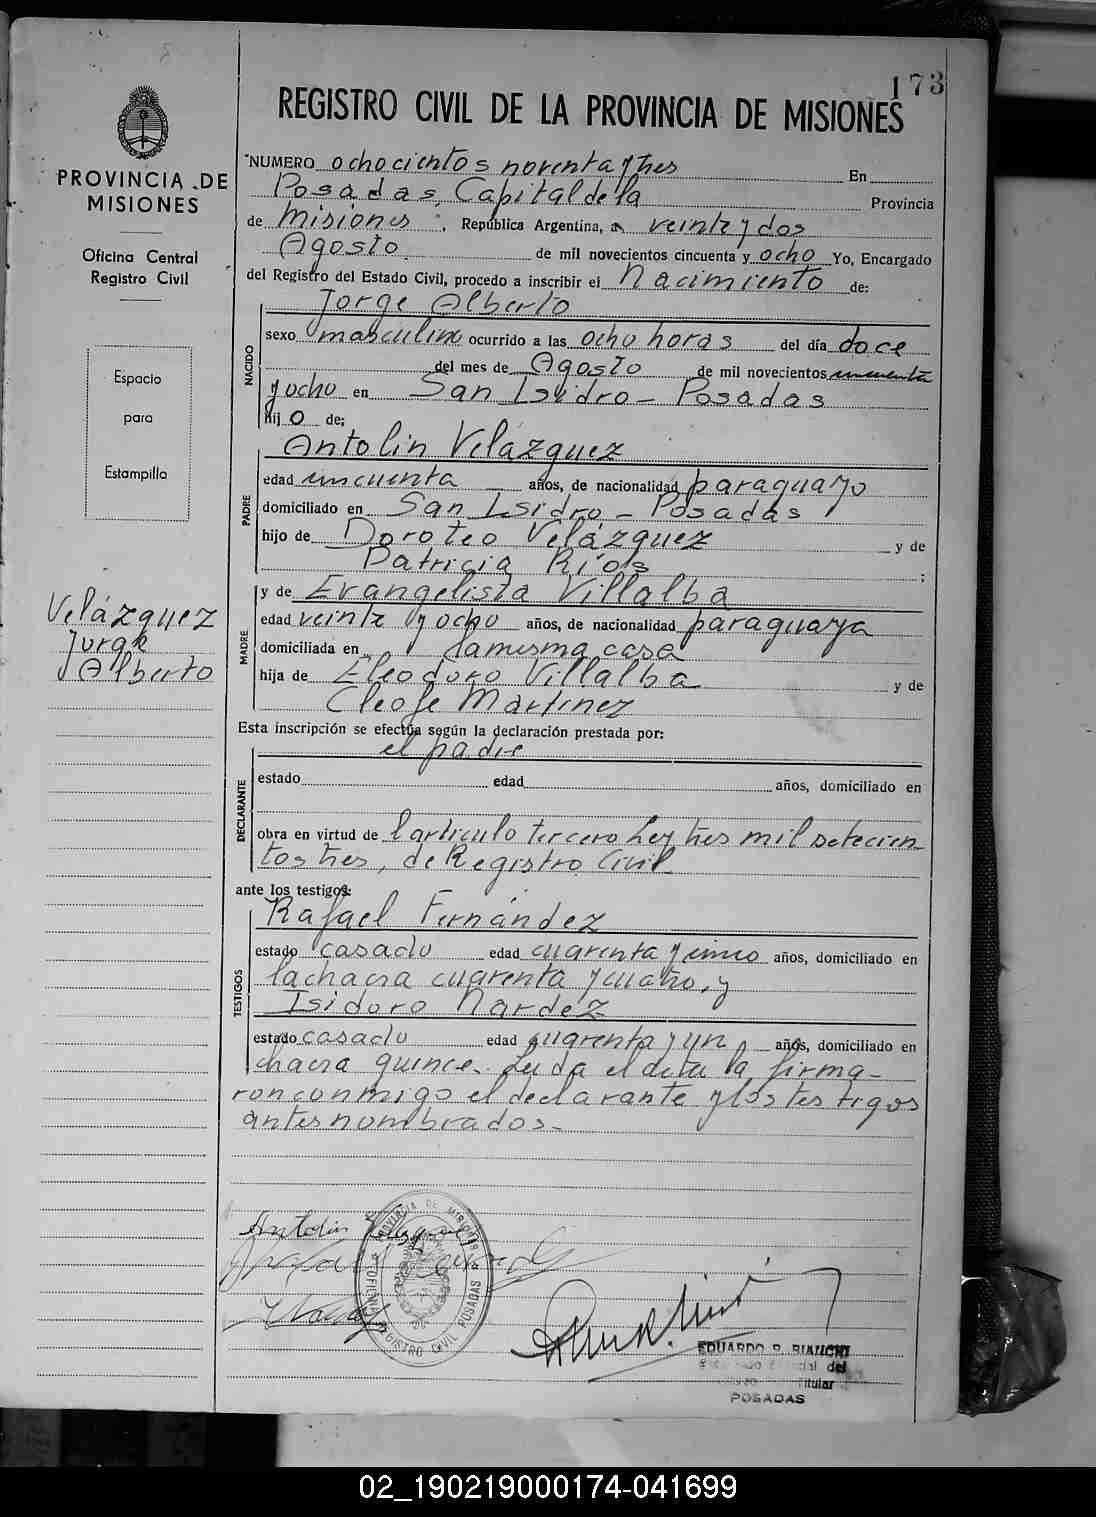 173
REGISTRO CIVIL DE LA PROVINCIA DE MISIONES
PROVINCIA DE
MISIONES
Oficina Central
Registro Civil
Espacio
para
Estampilla
Velázquez
Jorge
Alberto
NUMERO ochocientos noventa y tres En
Posadas, Capital de la Provincia
de Misiones, República Argentina, a veinte y dos
Agosto de mil novecientos cincuenta y ocho Yo, Encargado
del Registro del Estado Civil, procedo a inscribir el Nacimiento de:
NACIDO
Jorge Alberto
sexo masculino ocurrido a las ocho horas del día doce
del mes de Agosto de mil novecientos cincuenta
y ocho en San Isidro - Posadas
hijo de:
PADRE
Antolin Velázquez
edad cincuenta años, de nacionalidad paraguayo
domiciliado en San Isidro - Posadas
hijo de Doroteo Velázquez y de
Patricia Ríos ;
MADRE
y de Evangelista Villalba
edad veinte y ocho años, de nacionalidad paraguaya
domiciliada en la misma casa
hija de Eleodoro Villalba y de
Cleofe Martinez
Esta inscripción se efectúa según la declaración prestada por:
DECLARANTE
el padre
estado edad años, domiciliado en
obra en virtud de l artículo tercero Ley tres mil setecien-
tos tres, de Registro Civil
ante los testigos:
TESTIGOS
Rafael Fernández
estado casado edad cuarenta y cinco años, domiciliado en
la chacra cuarenta y cuatro, y
Isidoro Nardez
estado casado edad cuarenta y un años, domiciliado en
chacra quince. Leida el acta la firma-
ron conmigo el declarante y los testigos
antes nombrados.-
Antolin
PROVINCIA DE MISIONES
REGISTRO CIVIL POSADAS
EDUARDO R. BIANCHI
Titular
POSADAS
02_190219000174-041699